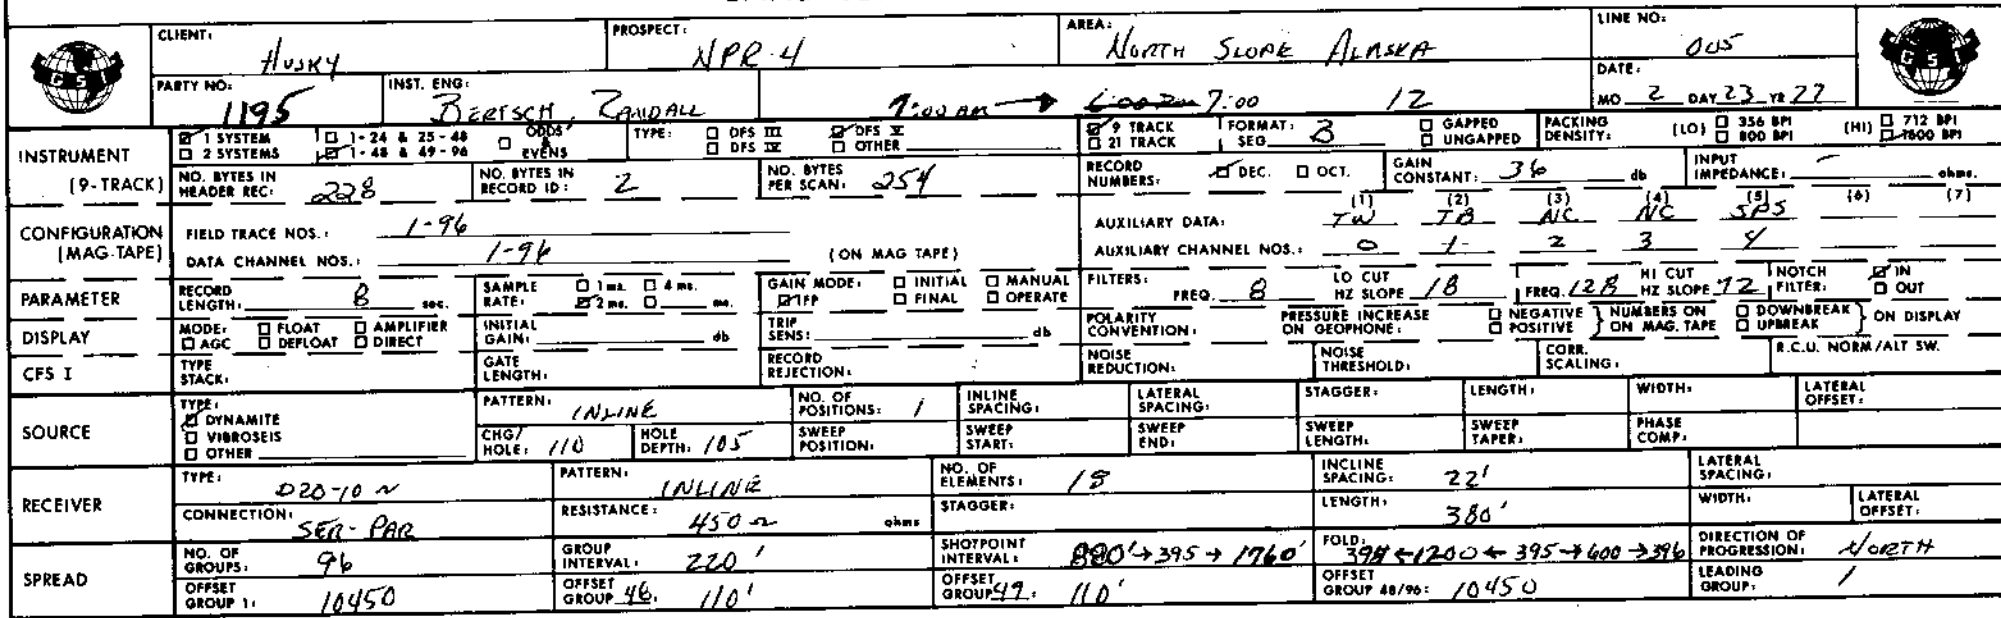 CLIENT: HUSKY PROSPECT: NPR-4 AREA: NORTH SLOPE ALASKA LINE NO: 005
GSI GSI
PARTY NO: 1195 INST. ENG: BERTSCH, RANDALL 7:00 AM → 7:00 12 DATE: MO 2 DAY 23 YR 77
INSTRUMENT (9-TRACK) 1 SYSTEM 1-24 & 25-48 ODDS & EVENS TYPE: DFS III DFS V 9 TRACK FORMAT: B GAPPED PACKING DENSITY: (LO) 356 BPI (HI) 712 BPI
2 SYSTEMS 1-48 & 49-96 DFS IV OTHER 21 TRACK SEG UNGAPPED 800 BPI 1600 BPI
NO. BYTES IN HEADER REC: 228 NO. BYTES IN RECORD ID: 2 NO. BYTES PER SCAN: 254 RECORD NUMBERS: DEC. OCT. GAIN CONSTANT: 36 db INPUT IMPEDANCE: — ohms.
CONFIGURATION (MAG-TAPE) FIELD TRACE NOS.: 1-96 AUXILIARY DATA: (1) TW (2) TB (3) NC (4) NC (5) SPS (6) (7)
DATA CHANNEL NOS.: 1-96 (ON MAG TAPE) AUXILIARY CHANNEL NOS.: 0 1 2 3 4
PARAMETER RECORD LENGTH: 8 sec. SAMPLE RATE: 1 ms. 4 ms. 2 ms. ms. GAIN MODE: INITIAL MANUAL IFP FINAL OPERATE FILTERS: FREQ. 8 LO CUT HZ SLOPE 18 FREQ. 128 HI CUT HZ SLOPE 72 NOTCH FILTER: IN OUT
DISPLAY MODE: FLOAT AMPLIFIER AGC DEFLOAT DIRECT INITIAL GAIN: db TRIP SENS: db POLARITY CONVENTION: PRESSURE INCREASE ON GEOPHONE: NEGATIVE POSITIVE } NUMBERS ON ON MAG. TAPE DOWNBREAK UPBREAK } ON DISPLAY
CFS I TYPE STACK: GATE LENGTH: RECORD REJECTION: NOISE REDUCTION: NOISE THRESHOLD: CORR. SCALING: R.C.U. NORM/ALT SW.
SOURCE TYPE: DYNAMITE VIBROSEIS OTHER PATTERN: INLINE NO. OF POSITIONS: 1 INLINE SPACING: LATERAL SPACING: STAGGER: LENGTH: WIDTH: LATERAL OFFSET:
CHG/HOLE: 110 HOLE DEPTH: 105 SWEEP POSITION: SWEEP START: SWEEP END: SWEEP LENGTH: SWEEP TAPER: PHASE COMP:
RECEIVER TYPE: D20-10 ~ PATTERN: INLINE NO. OF ELEMENTS: 18 INCLINE SPACING: 22' LATERAL SPACING:
CONNECTION: SER-PAR RESISTANCE: 450 Ω ohms STAGGER: LENGTH: 380' WIDTH: LATERAL OFFSET:
SPREAD NO. OF GROUPS: 96 GROUP INTERVAL: 220' SHOTPOINT INTERVAL: 880' → 395 → 1760' FOLD: ← 1200 ← 395 → 600 → 396 DIRECTION OF PROGRESSION: NORTH
OFFSET GROUP 1: 10450 OFFSET GROUP 48: 110' OFFSET GROUP 49: 110' OFFSET GROUP 48/96: 10450 LEADING GROUP: 1